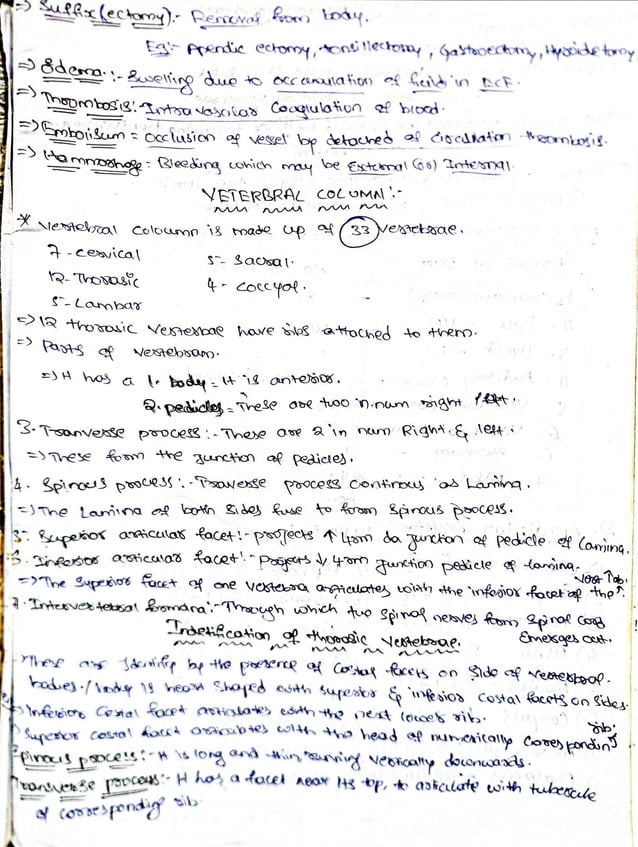 => Suffix (ectomy):- Removal from body.
Eg:- Apendic ectomy, tonsillectomy, Gastroectomy, Hysoidetomy
=> Edema:- Swelling due to accumulation of fluid in ECF.
=> Thoombosis:- Intravascular Coagulation of blood.
=> Embolisum = Occlusion of vessel by detached of circulation thrombosis.
=> Hammorrhage: Bleeding which may be External (or) Internal.
VETERBRAL COLUMN:-
* Vertebral coloumn is made up of 33 vertebrae.
7 - cervical 5 - Sacral.
12 - Thorasic 4 - Coccyal.
5 - Lambar
=> 12 thorasic Vertebrae have ribs attached to them.
=> Parts of vertebram.
=> It has a 1. body = It is anterior.
2. pedicles = These are two in num right / left.
3. Tranverse process:- These are 2 in num Right & left.
=> These form the junction of pedicles.
4. Spinous process:- Traverse process continous as Lamina.
=> The Lamina of both Sides fuse to form Spinous process.
5. Superior articular facet:- projects ↑ 4rm da junction of pedicle of Lamina.
6. Inferior articular facet:- Projects ↓ 4rm junction pedicle of lamina.
=> The Superior facet of one vertebra articulates with the inferior facet of the
7. Intervertebral foramina:- Through which the Spinal nerves from Spinal Cord
Emerges out.
Indetification of thorasic Vertebrae.
These are Identify by the presence of Costal facets on Side of vertebral
bodies. / body is heart Shaped with superior & inferior costal facets on sides.
Inferior Costal facet articulates with the next lower rib.
Superior costal facet articulates with the head of numerically Corresponding rib.
Spinous process:- It is long and thin running vertically downwards.
Transverse process:- It has a facet near its top, to articulate with tubercule
of corresponding rib.